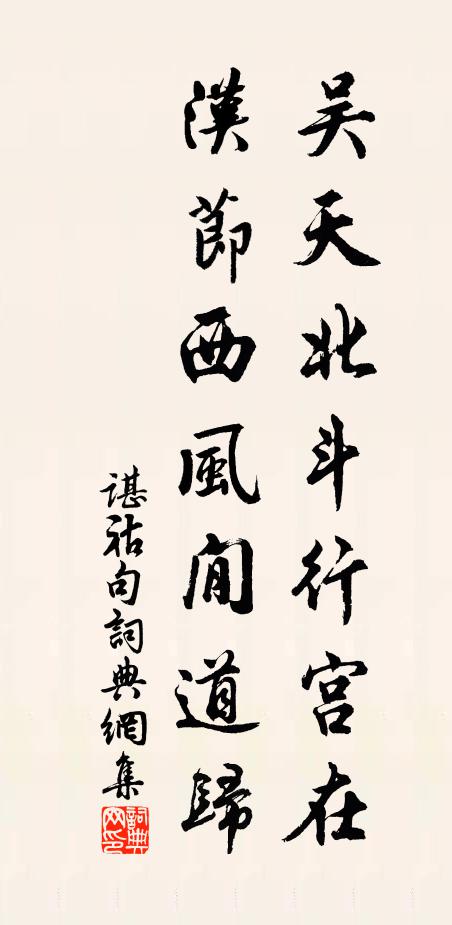 吴天北斗行宫在
漢節西風間道歸
谌祜句詞典網集
詞典網印